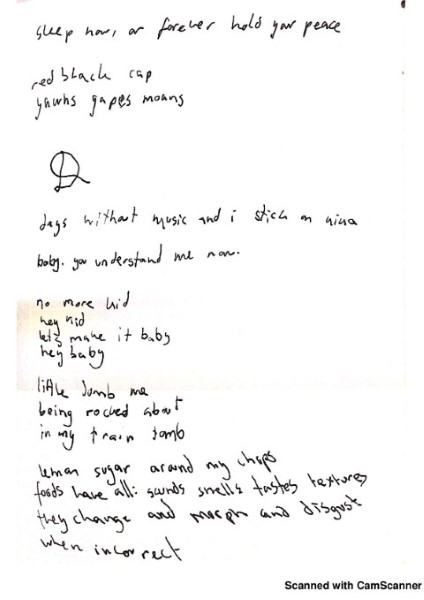 sleep now, or forever hold your peace
red black cap
yawns gapes moans
days without music and i stick on nina
baby. you understand me now.
no more kid
hey kid
lets make it baby
hey baby
little dumb me
being rocked about
in my train tomb
lemon sugar around my chops
foods have all: sounds smells tastes textures
they change and morph and disgust
when incorrect
Scanned with CamScanner